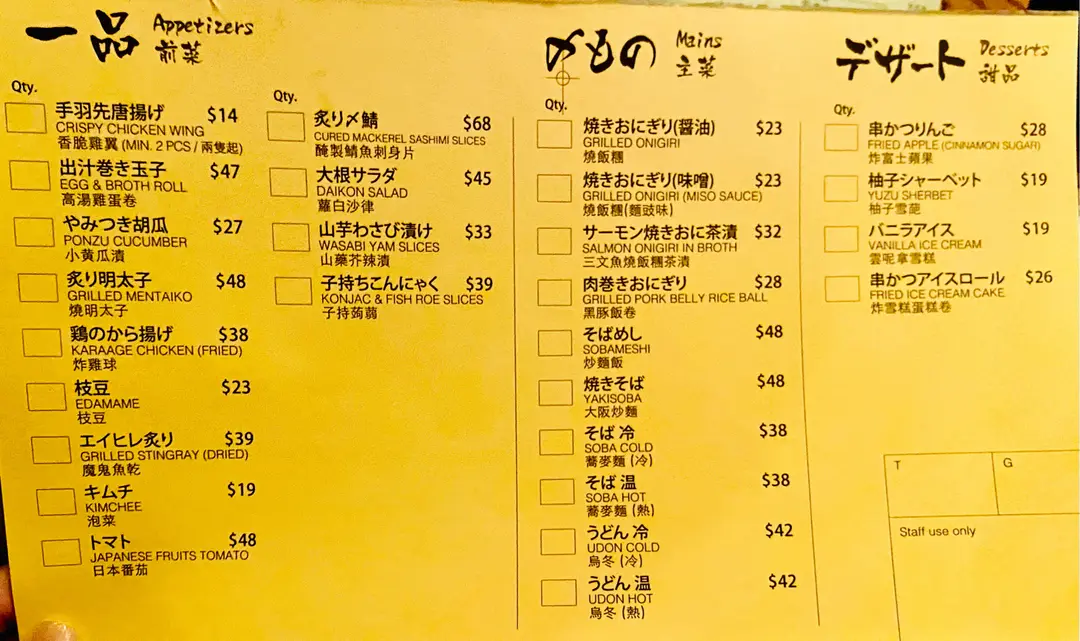 一品 Appetizers
前菜
Qty.
手羽先唐揚げ $14
CRISPY CHICKEN WING
香脆雞翼 (MIN. 2 PCS / 兩隻起)
出汁巻き玉子 $47
EGG & BROTH ROLL
高湯雞蛋卷
やみつき胡瓜 $27
PONZU CUCUMBER
小黄瓜漬
炙り明太子 $48
GRILLED MENTAIKO
燒明太子
鶏のから揚げ $38
KARAAGE CHICKEN (FRIED)
炸雞球
枝豆 $23
EDAMAME
枝豆
エイヒレ炙り $39
GRILLED STINGRAY (DRIED)
魔鬼魚乾
キムチ $19
KIMCHEE
泡菜
トマト $48
JAPANESE FRUITS TOMATO
日本番茄
Qty.
炙り〆鯖 $68
CURED MACKEREL SASHIMI SLICES
醃製鯖魚刺身片
大根サラダ $45
DAIKON SALAD
蘿白沙律
山芋わさび漬け $33
WASABI YAM SLICES
山藥芥辣漬
子持ちこんにゃく $39
KONJAC & FISH ROE SLICES
子持蒟蒻
〆もの Mains
主菜
Qty.
焼きおにぎり(醤油) $23
GRILLED ONIGIRI
燒飯糰
焼きおにぎり(味噌) $23
GRILLED ONIGIRI (MISO SAUCE)
燒飯糰(麵豉味)
サーモン焼きおに茶漬 $32
SALMON ONIGIRI IN BROTH
三文魚燒飯糰茶漬
肉巻きおにぎり $28
GRILLED PORK BELLY RICE BALL
黑豚飯卷
そばめし $48
SOBAMESHI
炒麵飯
焼きそば $48
YAKISOBA
大阪炒麵
そば 冷 $38
SOBA COLD
蕎麥麵 (冷)
そば 温 $38
SOBA HOT
蕎麥麵 (熱)
うどん 冷 $42
UDON COLD
烏冬 (冷)
うどん 温 $42
UDON HOT
烏冬 (熱)
デザート Desserts
甜品
Qty.
串かつりんご $28
FRIED APPLE (CINNAMON SUGAR)
炸富士蘋果
柚子シャーベット $19
YUZU SHERBET
柚子雪葩
バニラアイス $19
VANILLA ICE CREAM
雲呢拿雪糕
串かつアイスロール $26
FRIED ICE CREAM CAKE
炸雪糕蛋糕卷
T G
Staff use only